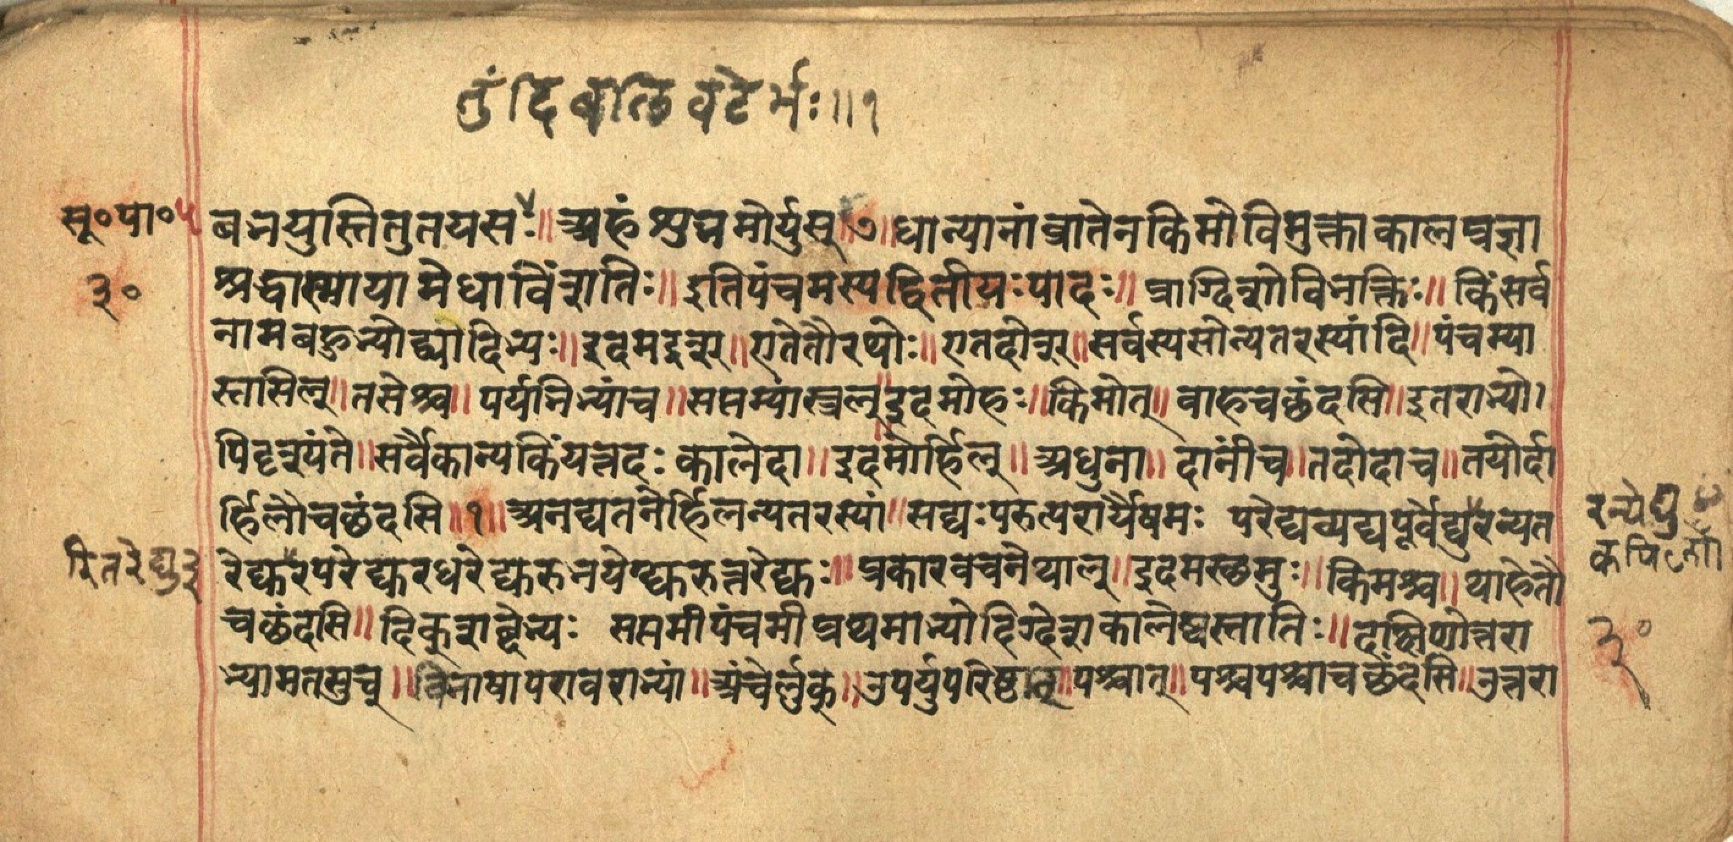 तुंदिबलिवटेर्भः॥१
सू॰पा॰५
बभयुस्तितुतयसः॥ अहं शुभमोर्युस्॥७॥धान्यानांव्रातेनकिमोविमुक्ताकालप्रज्ञा
३०
श्रद्धास्मायामेधाविंशतिः॥ इतिपंचमस्यद्वितीयःपादः॥ प्राग्दिशोविभक्तिः॥ किंसर्व
नामबहुभ्योद्व्यादिभ्यः॥ इदमइश्॥ एतेतौरथोः॥ एतदोश्॥ सर्वस्यसोन्यतरस्यांदि॥ पंचम्या
स्तसिल्॥ तसेश्च॥ पर्यभिभ्यांच॥ सप्तम्यास्त्रल्॥इदमोहः॥ किमोत्॥ वाहचछंदसि॥ इतराभ्यो
पिदृश्यंते॥ सर्वैकान्यकिंयत्तदः कालेदा॥ इदमोर्हिल्॥ अधुना॥ दानींच॥ तदोदाच॥ तयोर्दा
र्हिलौचछंदसि॥१॥ अनद्यतनेर्हिलन्यतरस्यां॥ सद्यःपरुत्परार्यैषमः परेद्यव्यद्यपूर्वेद्युरन्यत
रन्येद्यु
रितरेद्यु३
रेद्युरपरेद्युरधरेद्युरुभयेद्युरुत्तरेद्युः॥ प्रकारवचनेथाल्॥ इदमस्छमुः॥ किमश्च॥ थाहेतौ
चछंदसि॥ दिक्शब्देभ्यः सप्तमीपंचमीप्रथमाभ्योदिग्देशकालेष्वस्तातिः॥ दक्षिणोत्तरा
३॰
भ्यामतसुच्॥ विभाषापरावराभ्यां॥ अंचेर्लुक्॥ उपर्युपरिष्टात्॥ पश्चात्॥ पश्चपश्चाचछंदसि॥ उत्तरा